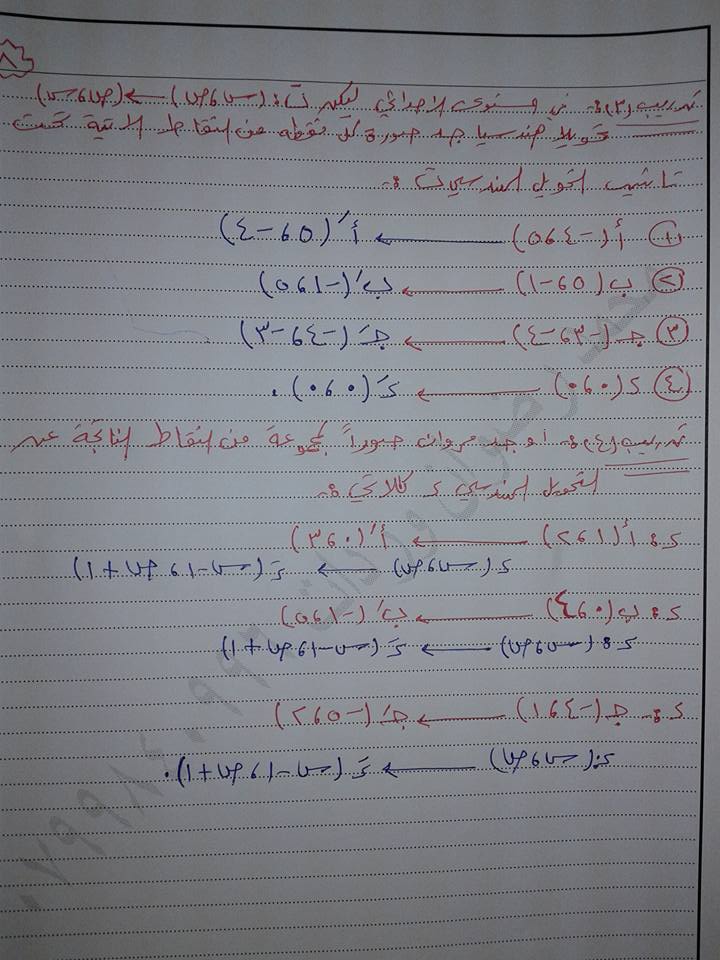 ٨٦
تدريب (٣): في مستوى الإحداثي ليكن ت: (س،ص) ← (ص،س)
تحويلا هندسيا جد صورة كل نقطة من النقاط الآتية تحت
تأثير التحويل الهندسي ت :-
١ أ(-٤،٥) ← أَ(٥،-٤)
٢ ب(٥،-١) ← بَ(-١،٥)
٣ جـ(-٣،-٤) ← جـَ(-٤،-٣)
٤ د(٠،٠) ← دَ(٠،٠).
تدريب (٤): أوجد مروان صوراً لمجموعة من النقاط الناتجة عن
التحويل الهندسي د كالآتي :-
د: أ(١،٢) ← أَ(٠،٣)
د(س،ص) ← دَ(س-١،ص+١)
د: ب(٠،٤) ← بَ(-١،٥)
د: (س،ص) ← دَ(س-١،ص+١)
د: جـ(-٤،١) ← جـَ(-٥،٢)
د: (س،ص) ← دَ(س-١،ص+١).